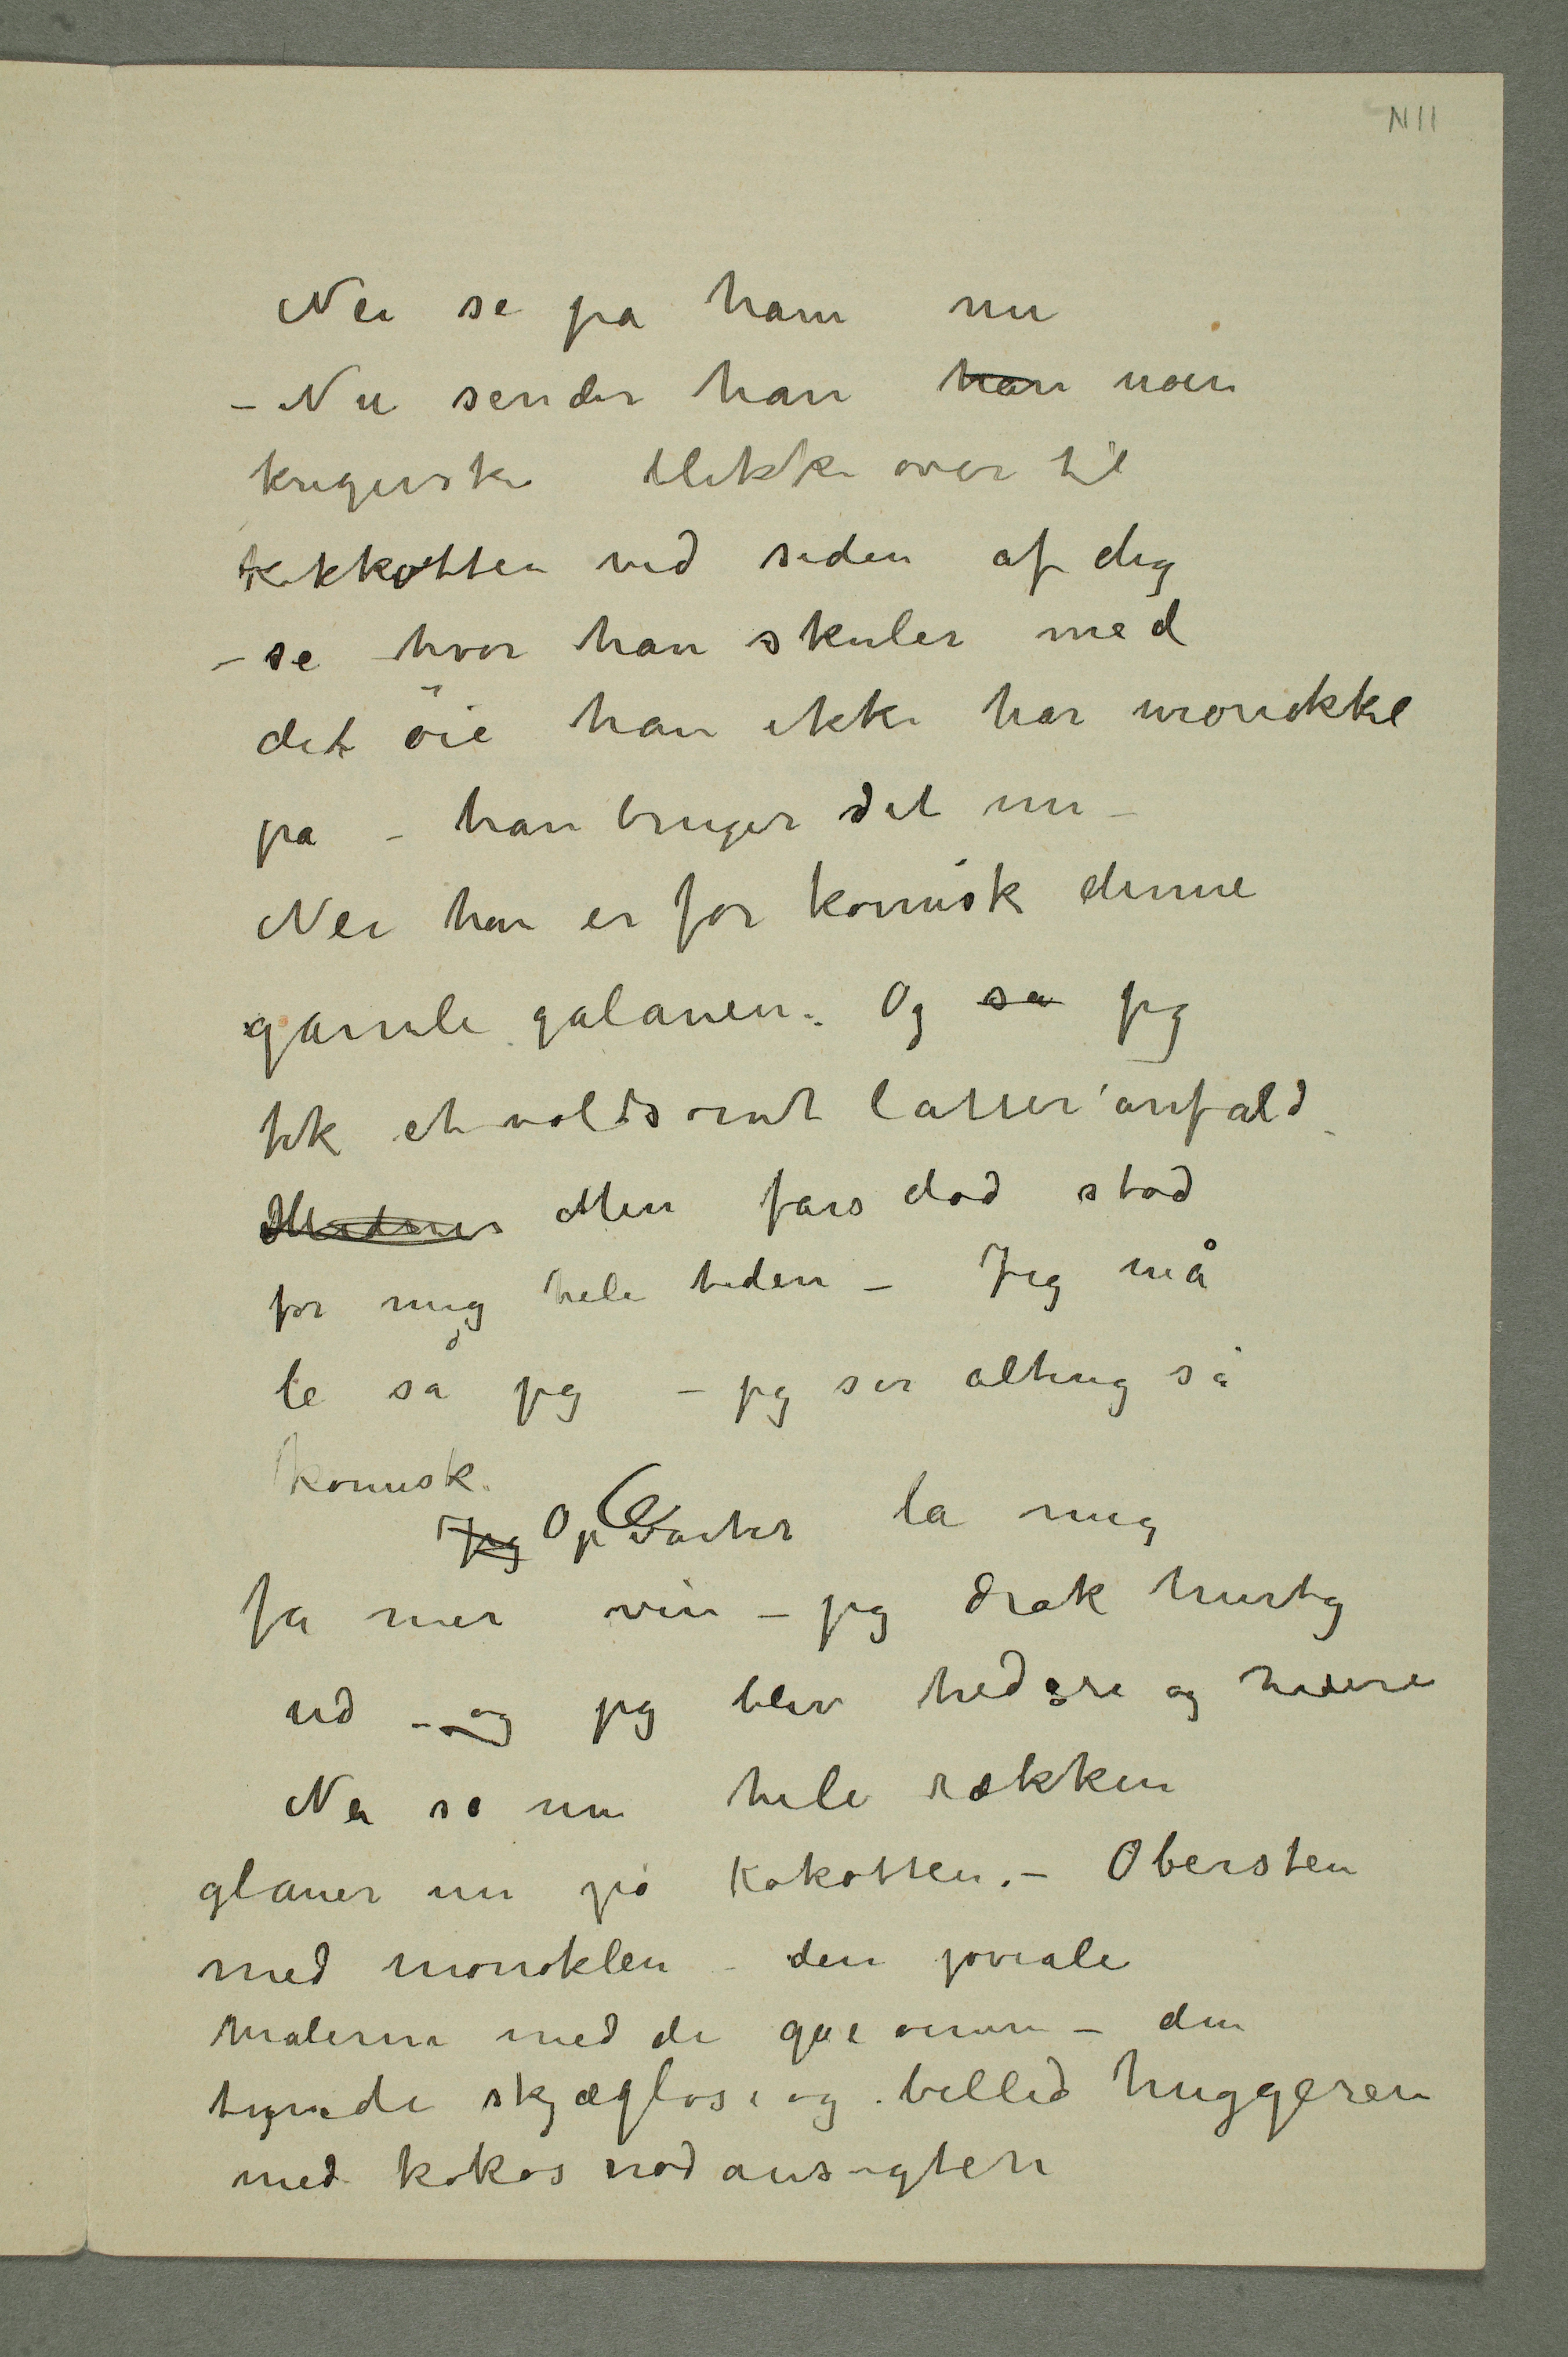 N 11
Nei se pa ham nu
– Nu sender han han noen
krigerske blikke over til
Kokkotten ved siden af dig
– se hvor han skuler med
det öie han ikke har monokkel
pa – han bruger det nu –
Nei han er for komisk denne
gamle galanen. Og sa jeg
fik et voldsomt latteranfald –
Men fars död stod
for mig hele tiden – Jeg må
le sa jeg – jeg ser alting så
komisk.
Jeg Opvarter la mig
fa mer vin – jeg drak hurtig
ud – og jeg blev hedere og
Nei se nu hele rækken
glaner nu på kokotten. – Obersten
med monoklen – den joviale
malerne med de – den
tynde skjægløse og billedhuggeren
med kokosnødansigten